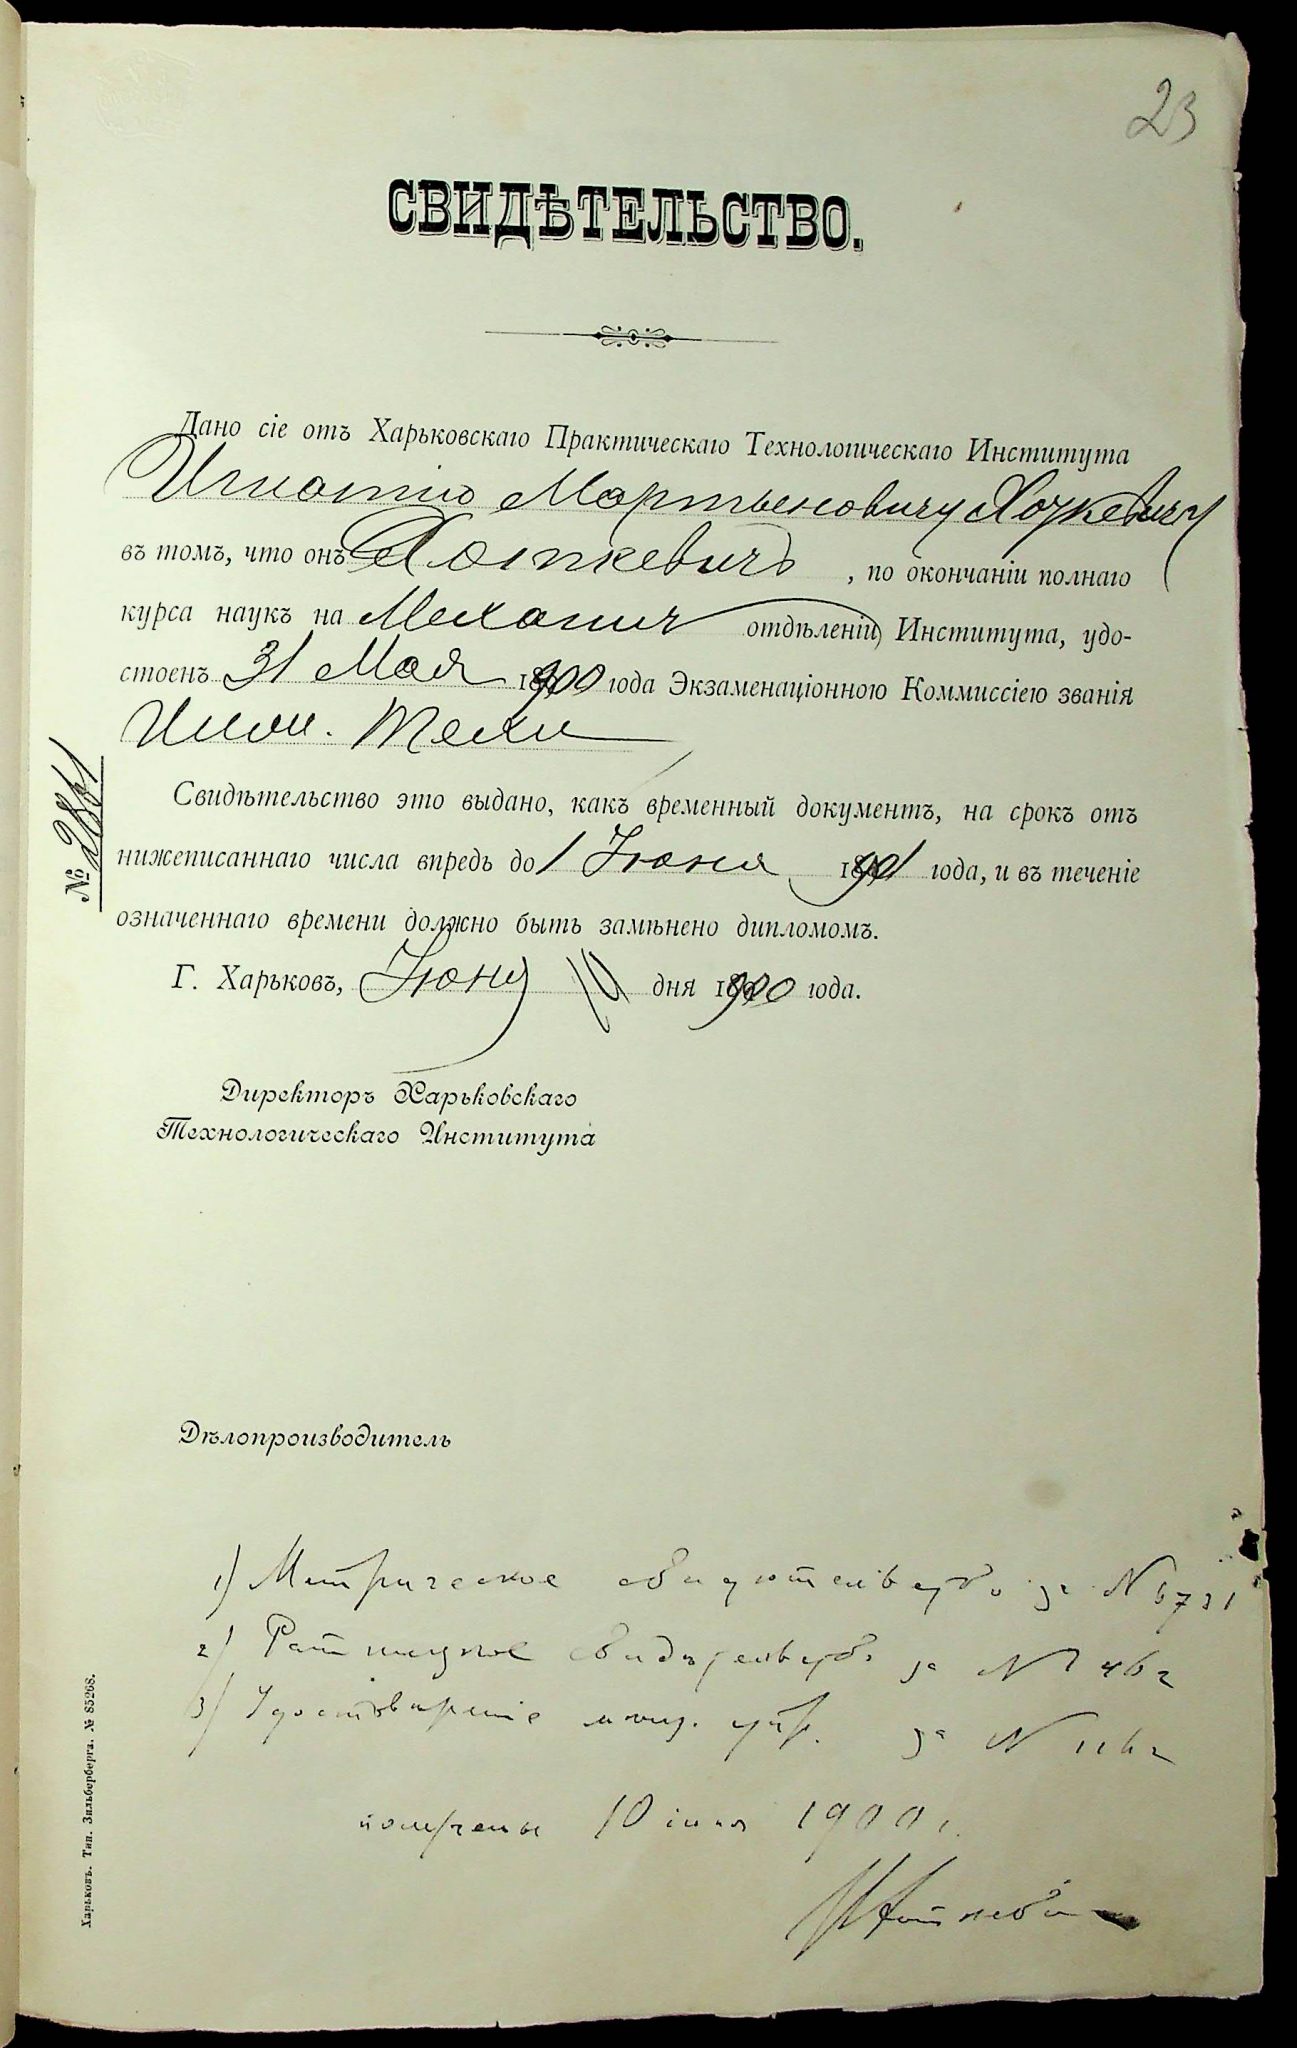 23
СВИДѢТЕЛЬСТВО.
Дано сіе отъ Харьковскаго Практическаго Технологическаго Института
Игнатію Мартыновичу Хоткевичу
въ томъ, что онъ Хоткевичъ, по окончаніи полнаго
курса наукъ на Механич отдѣленіи Института, удо-
стоенъ 31 Мая 1900 года Экзаменаціонною Коммиссіею званія
Инж. Техн
№ 2861
Свидѣтельство это выдано, какъ временный документъ, на срокъ отъ
нижеписаннаго числа впредь до 1 Іюня 1901 года, и въ теченіе
означеннаго времени должно быть замѣнено дипломомъ.
Г. Харьковъ, Іюня 10 дня 1900 года.
Директоръ Харьковскаго
Технологическаго Института
Дѣлопроизводитель
1) Метрическое свидѣтельство за №
2) свидѣтельство за №
3) Удостовѣреніе за №
получены 10 іюня 1900 г.
Хоткевич
Харьковъ. Тип. Зильберберга. № 85268.